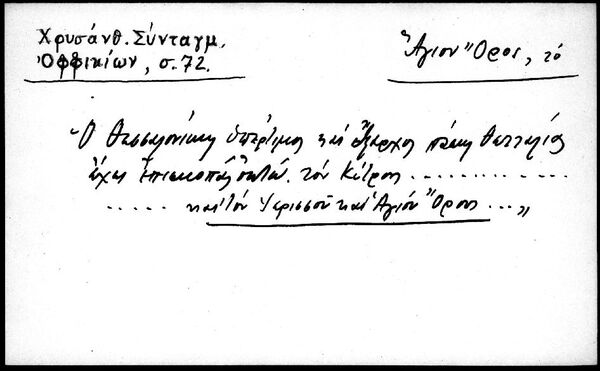 Χρυσάνθ. Σύνταγμ.
Ὀφφικίων, σ. 72.
Ἅγιον Ὄρος, τό
"Ὁ Θεσσαλονίκης ὑπέρτιμος καὶ ἔξαρχος πάσης Θετταλίας
ἔχει ἐπισκοπὰς τὸν Κίτρους ..............
..... καὶ τὸν Ἱερισσοῦ καὶ Ἁγίου Ὄρους ..."